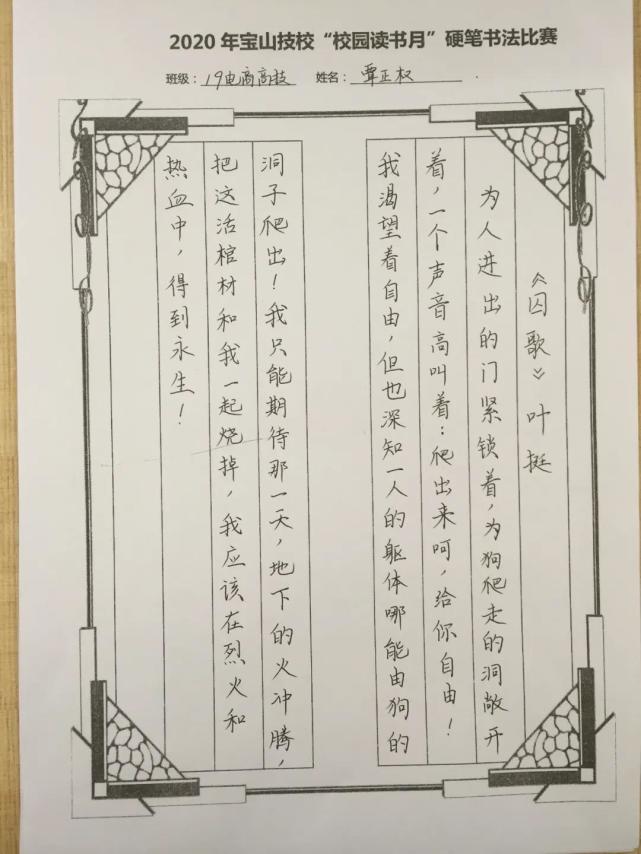 2020年宝山技校“校园读书月”硬笔书法比赛
班级：19电商高技 姓名：覃正权
《囚歌》叶挺
为人进出的门紧锁着，为狗爬走的洞敞开
着，一个声音高叫着：爬出来呵，给你自由！
我渴望着自由，但也深知一人的躯体哪能由狗的
洞子爬出！我只能期待那一天，地下的火冲腾，
把这活棺材和我一起烧掉，我应该在烈火和
热血中，得到永生！